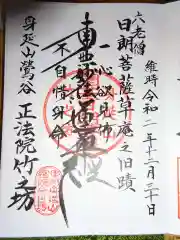 六老僧
日朗菩薩草庵之旧蹟
維時令和二年十二月三十日
南無妙法蓮華経
一心欲見佛
不自惜身命
身延山鶯谷
正法院竹之坊